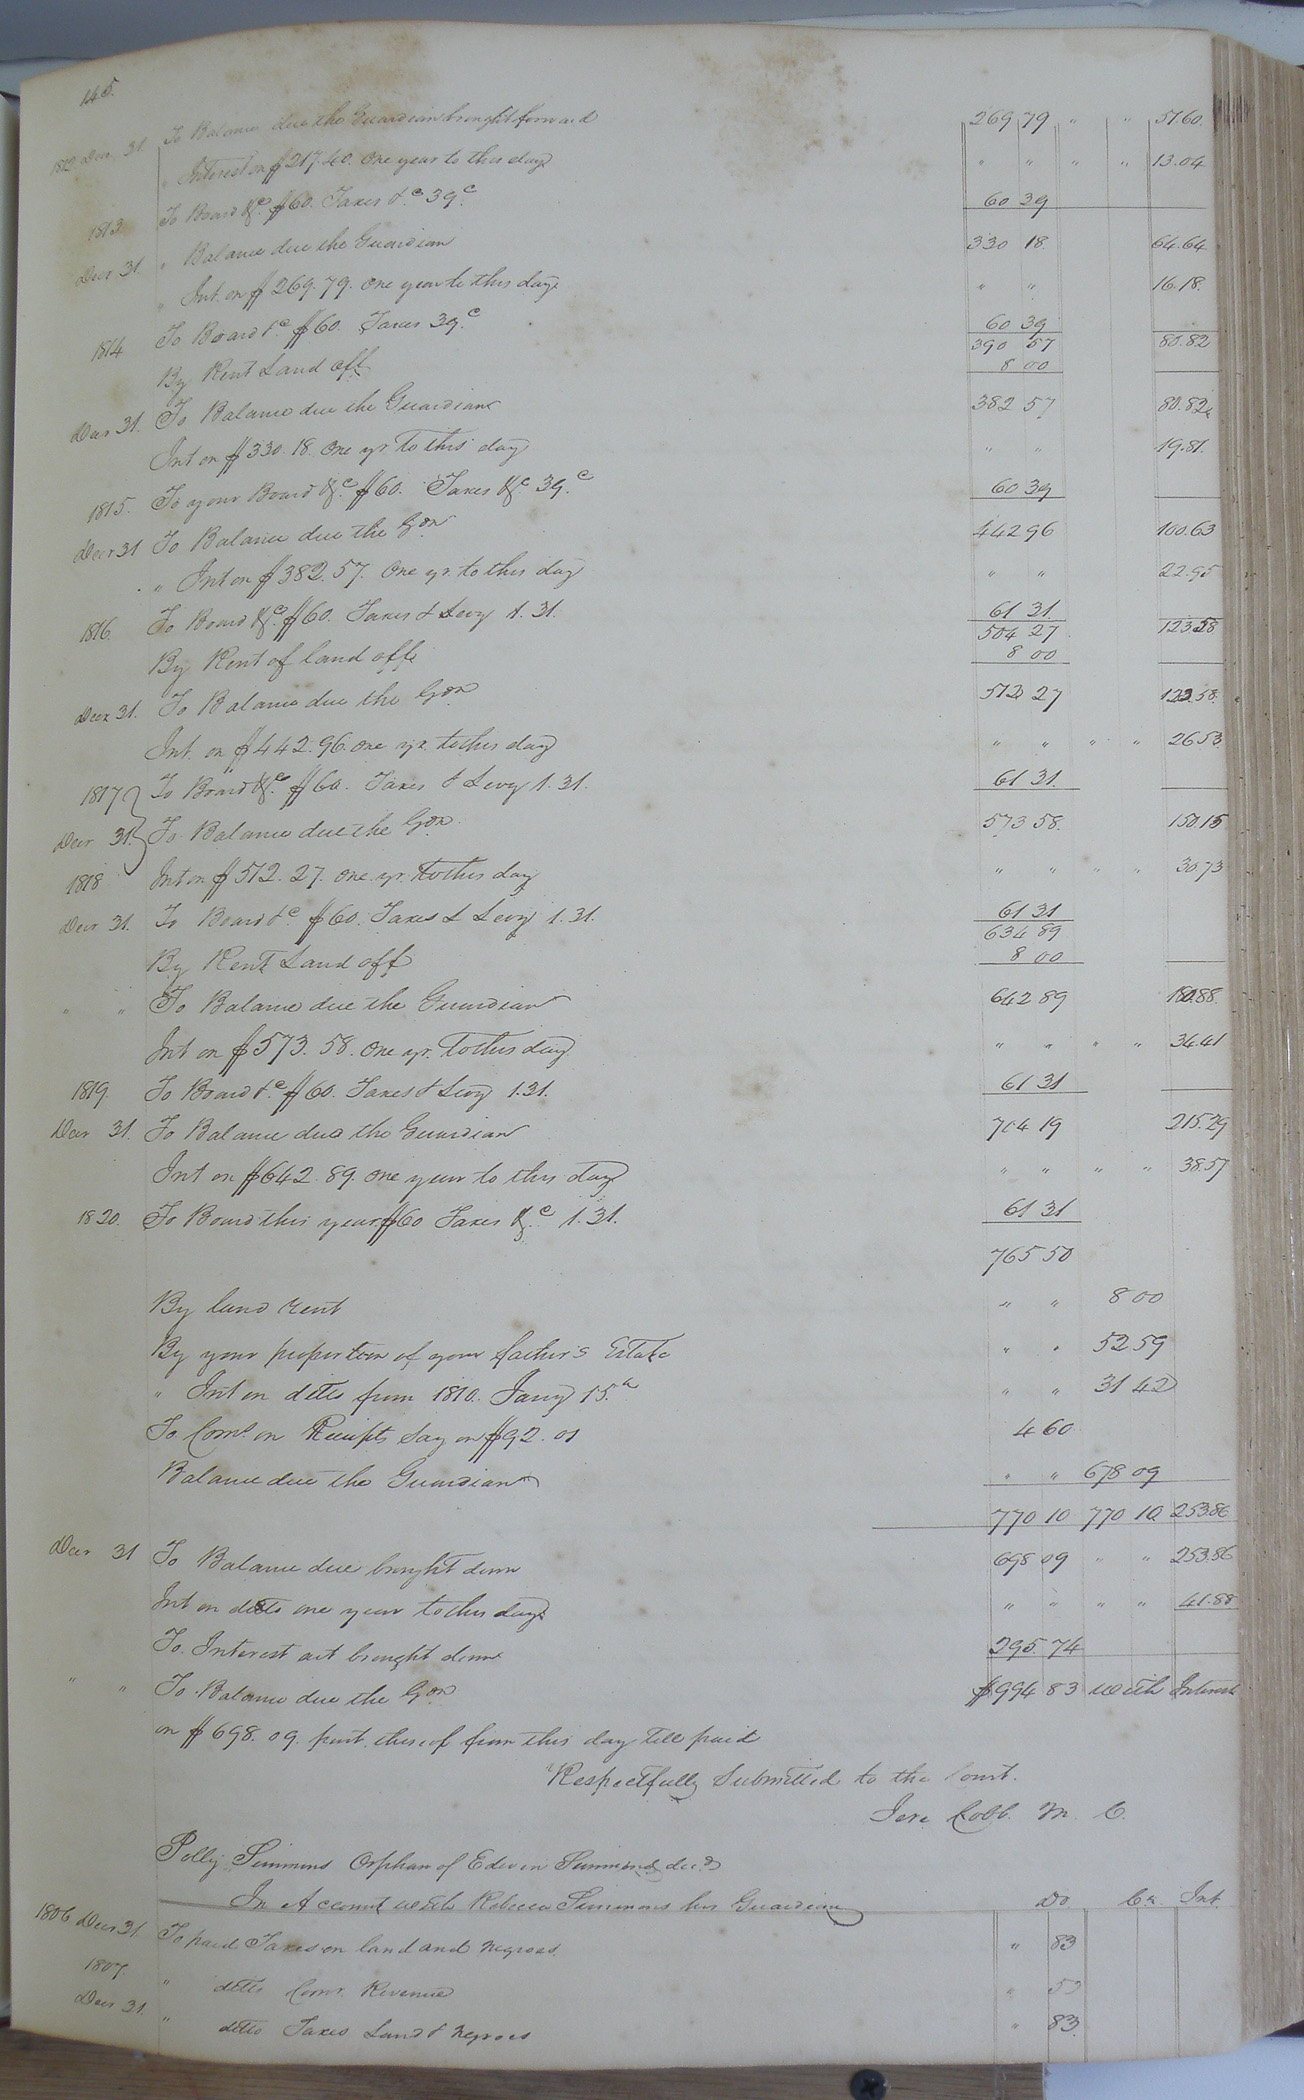 145.
1812 Decr 31. To Balance due the Guardian brought forward 269 79 " " 51.60.
" Interest on $217.40. One year to this day " " " " 13.04
1813 To Board &c. $60. Taxes &c 39c. 60 39
Decr 31. " Balance due the Guardian 330 18. 64.64
" Int. on $269.79. One year to this day " " 16.18.
1814 To Board &c $60. Taxes 39.c 60 39
390 57 80.82
By Rent Land off 8 00
Decr 31. To Balance due the Guardian 382 57 80.82
Int on $330.18. One yr. to this day " " 19.81.
1815. To your Board &c. $60. Taxes &c 39.c 60 39
Decr 31 To Balance due the Gdn 442 96 100.63
" Int on $382.57. One yr. to this day " " 22.95
1816. To Board &c. $60. Taxes & Levy 1.31. 61 31.
504 27 123.58
By Rent of land off 8 00
Decr 31. To Balance due the Gdn. 512 27 123.58.
Int. on $442.96. One yr. to this day " " " " 26.53
1817 To Board &c. $60. Taxes & Levy 1.31. 61 31.
Decr 31. To Balance due the Gdn. 573 58. 150.15
1818 Int on $512.27. One yr. to this day " " " " 30.73
Decr 31. To Board &c $60. Taxes & Levy 1.31. 61 31
634 89
By Rent Land off 8 00
" " To Balance due the Guardian 642 89 180.88.
Int on $573.58. One yr. to this day " " " " 34.41
1819. To Board &c. $60. Taxes & Levy 1.31. 61 31
Decr 31. To Balance due the Guardian 704 19 215.29
Int on $642.89. One year to this day " " " " 38.57
1820. To Board this year $60 Taxes &c 1.31. 61 31
765 50
By land Rent " " 8 00
By your proportion of your father's Estate " " 52 59
" Int on ditto from 1810. Jany 15.th " " 31 42
To Coms. on Receipts Say on $92.01 4 60
Balance due the Guardian " " 678 09
770 10 770 10 253.86
Decr 31 To Balance due brought down 698 09 " " 253.86
Int on ditto one year to this day " " " " 41.88
To. Interest act brought down 295 74
" " To Balance due the Gdn $994 83 with Interest
on $698.09. part thereof from this day till paid
Respectfully Submitted to the Court.
Jere Cobb. M. C.
Polly Simmons Orphan of Edwin Simmons decd
In Account with Rebecca Simmons her Guardian Dr Cr. Int.
1806 Decr 31. To paid Taxes on land and Negroes. " 83
1807. " ditto Comr. Revenue "
Decr 31. " ditto Taxes Land & Negroes " 83.